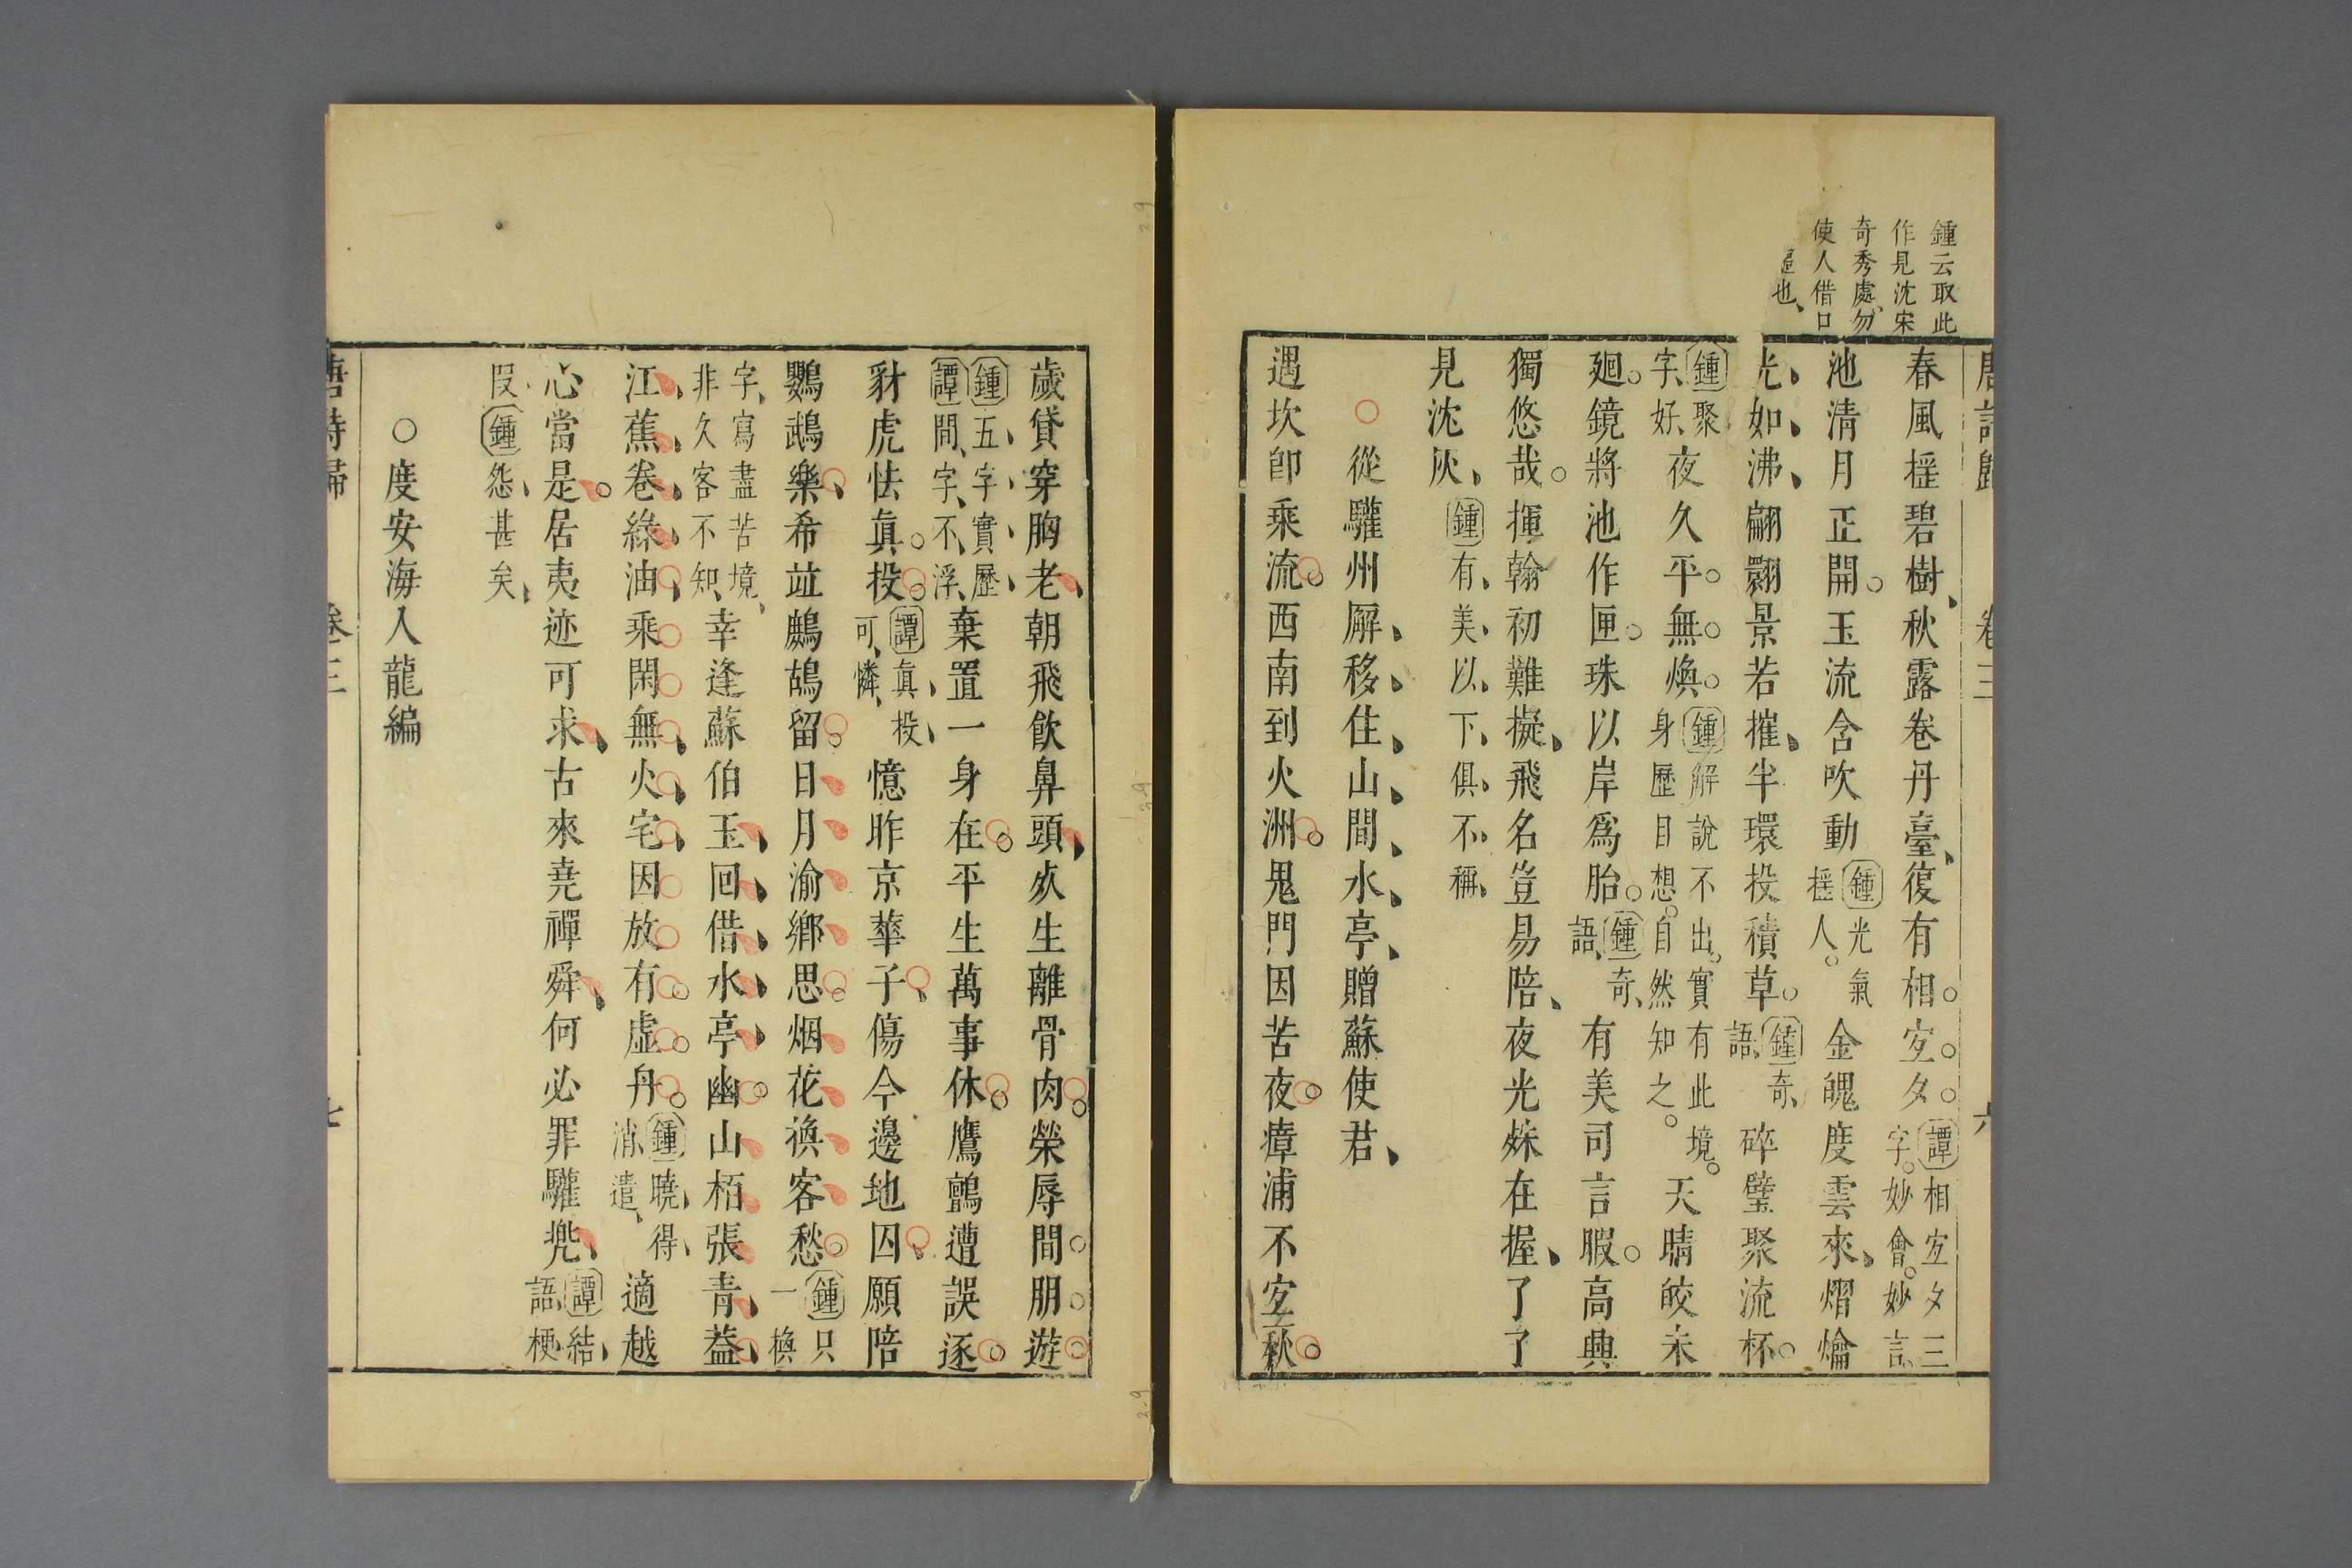 鍾云取此
作見沈宋
奇秀處勿
使人借口
也
唐詩歸 卷三 六
春風揺碧樹秋露卷丹臺復有相宜夕
譚相宜夕三
字妙會妙言
池清月正開玉流含吹動
鍾光氣
揺人
金魄度雲來熠爚
光如沸翩翾景若摧半環投積草
鍾奇
語
碎璧聚流杯
鍾聚
字好
夜久平無煥
鍾解說不出實有此境
身歷目想自然知之
天晴皎未
廻鏡將池作匣珠以岸爲胎
鍾奇
語
有美司言暇高興
獨悠哉揮翰初難擬飛名豈易陪夜光殊在握了了
見沈灰
鍾有美以下俱不稱
○從驩州廨移住山間水亭贈蘇使君
遇坎卽乘流西南到火洲鬼門因苦夜瘴浦不宜秋
歲貸穿胸老朝飛飲鼻頭死生離骨肉榮辱間朋遊
鍾五字實歷
譚間字不浮
棄置一身在平生萬事休鷹鸇遭誤逐
豺虎怯真投
譚真投
可憐
憶昨京華子傷今邊地囚願陪
鸚鵡樂希竝鷓鴣留日月渝鄉思烟花換客愁
鍾只
一換
字寫盡苦境
非久客不知
幸逢蘇伯玉回借水亭幽山柏張青葢
江蕉卷綠油乘閑無火宅因放有虛舟
鍾曉得
消遣
適越
心當是居夷迹可求古來堯禪舜何必罪驩兜
譚結
語梗
叚
鍾怨甚矣
○度安海入龍編
唐詩歸 卷三 七